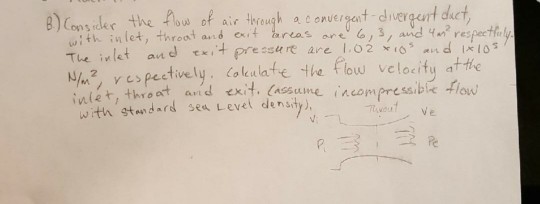 B) Consider the flow of air through a convergent-divergent duct,
with inlet, throat and exit areas are 6, 3, and 4 m² respectfully.
The inlet and exit pressure are 1.02 x10⁵ and 1x10⁵
N/m², respectively. Calculate the flow velocity at the
inlet, throat and exit. (assume incompressible flow
with standard sea Level density).
Throat
Vi
Ve
Pi
Pe